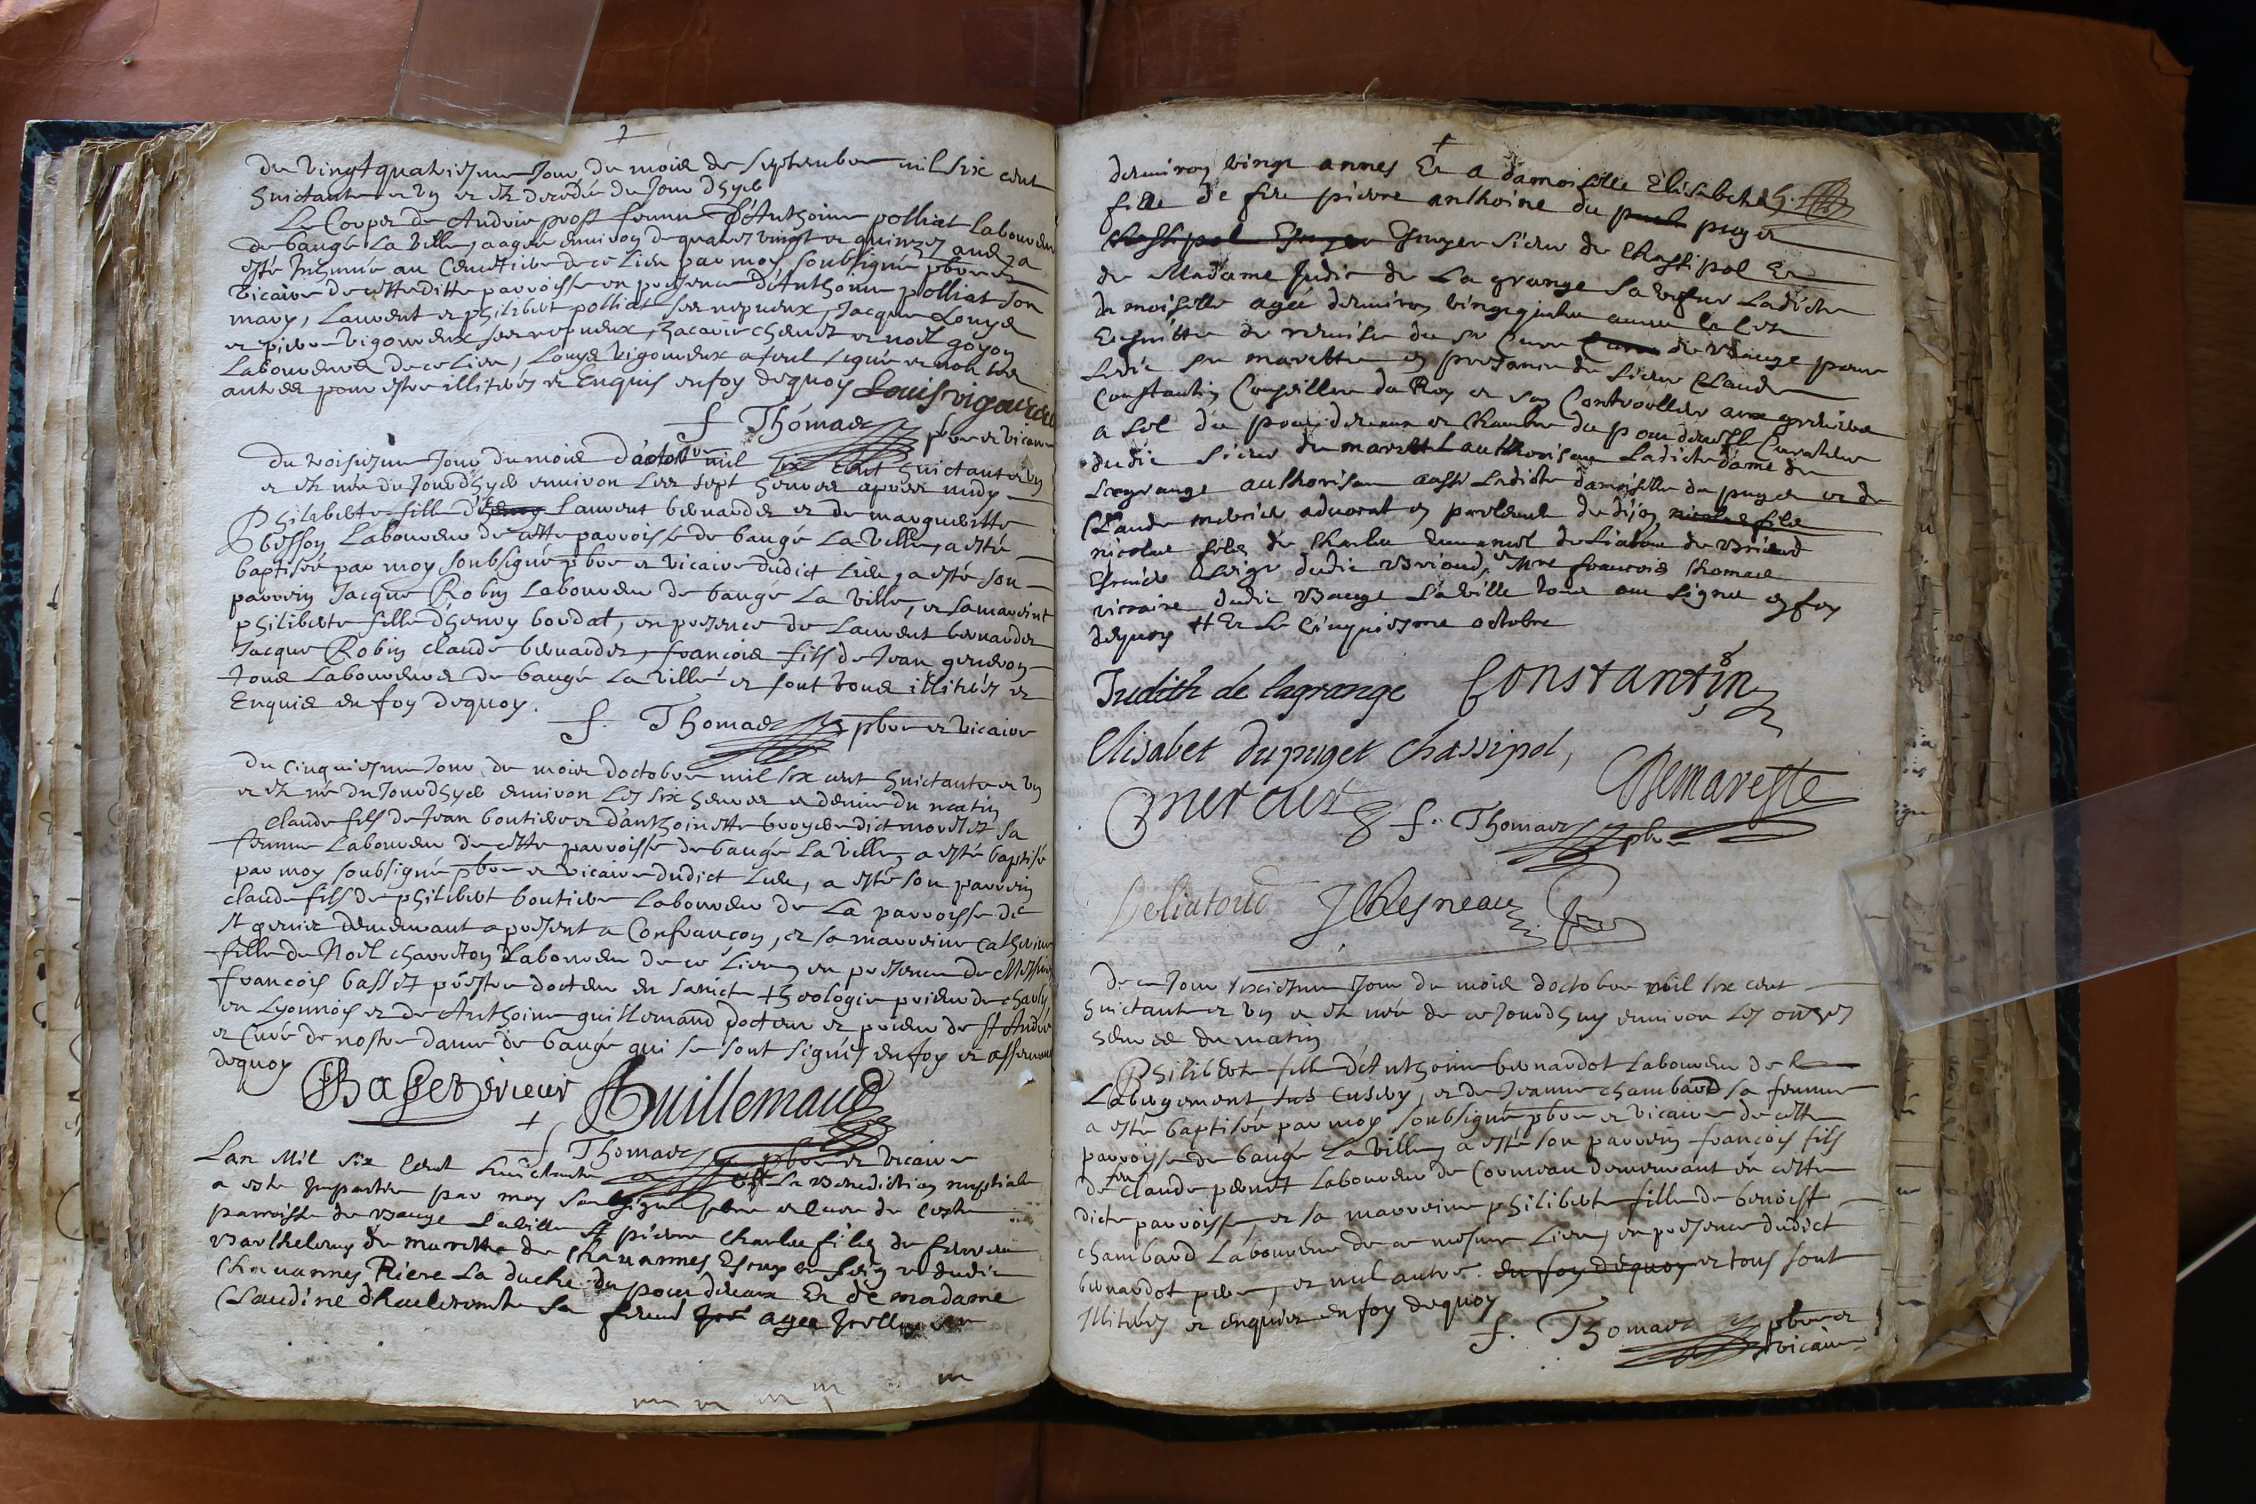 du vingt quatriesme Jour du mois de septembre mil six cent
huictante et un et est decedée du Jour dhyer
Le Corps de Andrée post femme d'Anthoine polliat laboureur
de baugé La Ville, aagée environ de quatre vingt et quinzes ans, a
esté Inhumée au Cemetiere de ce Lieu par moy soubsigné pbre et
vicaire de cette ditte parroisse en presence d'Anthoine polliat son
mary, Laurent et philibert polliat ses nepveux, Jacque Louys
et pierre vigoureux ses nepveux, Zacarie chenet et noël goyon
Laboureurs de ce Lieu, Louys vigoureux a seul signé et non les
autres pour estre illitirés et Enquis en foy dequoy Louis vigoureux
f Thomas pbre et vicaire
du troisiesme Jour du mois d'actobre mil six cent huictante et un
et est née du Jour dhyer environ Les sept heures apprès midy
Philiberte fille de Laurent bernardet et de margueritte
besson Laboureur de cette parroisse de baugé La Ville, a esté
baptisée par moy soubsigné pbre et vicaire dudict Lieu, a esté son
parrein Jacque Robin Laboureur de baugé La Ville, et sa marreine
philiberte fille d'henry bordat, en presence de Laurent bernardet
Jacque Robin claude bernardet, francois fils de Jean
tous Laboureurs de baugé La Ville et sont tous illitirés et
Enquis en foy dequoy.
f. Thomas pbre et vicaire
du cinquiesme Jour du mois doctobre mil six cent huictante et un
et est né du Jour dhyer environ Les six heures et demie du matin
claude fils de Jean boutier et d'anthoinette broyer dict moret et sa
femme Laboureur de cette parroisse de baugé La Ville, a esté baptisé
par moy soubsigné pbre et vicaire dudict Lieu, a esté son parrein
claude fils de philibert boutier Laboureur de La parroisse de
st genier demeurant a present a Confrancon, et sa marreine catherine
fille de Noël charreton Laboureur de ce Lieu, en presence de Messire
francois basset prestre docteur en saincte theologie prieur de charly
en Lyonnois et de Anthoine guillemaud docteur et prieur de st André
et Curé de nostre dame de baugé qui se sont signés en foy et asseurance
dequoy
Basset prieur Guillemaud
f Thomas pbre et vicaire
Lan Mil six Cent huictante et La Benediction nuptiale
a este Impartie par moy soubsigné pbre et Cure de ceste
parroisse de Bauge Laville A pierre Charles filz de feu
Barthelemy de marette de Chavannes Escuyer seigr dudit
Chavannes Riere La duche de pour de vaux Et de madame
Claudine sa femme agee
denviron vingt annes Et a damoiselle Elisabeth
fille de feu pierre anthoine du puget
Escuyer Sieur de Chassipol Et
de Madame Judic de La grange sa vefve Ladicte
damoiselle agée denviron vingt quatre
de remise du sr Cure de Bauge pour
Ledic sr marette en presance de sieur Claude
Constantin Conseiller du Roy et son Controolleur aux greniers
a sel du pour de vaux et Chambre du pour de Curateur
dudic sieur de marette authorisan Ladicte dame de
Lagrange authorisan aussi Ladicte damoiselle du puget et de
Claude mercier advocat en parlement de dijon
nicolas filz de Charles Emanuel de Liatoud de Briord
Escuier Seigr dudic Briord, et Mre francois thomas
vicaire dudic Bauge Laville tous ont signé en foy
dequoy # Et Le Cinquiesme octobre
Judith de lagrange Constantin
Elisabet du puget chassipol,
Demareste
Mercier f. Thomas pbre
Deliatoud J Chesneau
de ce Jour sixiesme Jour du mois doctobre mil six cent
huictante et un et est née de ce Jourdhuy environ Les onzes
heures du matin
Philiberte fille d'Anthoine bernardot Laboureur de
Labergement sus Cusery, et de Jeanne chambard sa femme
a esté baptisée par moy soubsigné pbre et vicaire de cette
parroisse de baugé La Ville, a esté son parrein francois fils
de feu claude perret Laboureur de Cormeau demeurant en cette
dicte parroisse, et sa marreine philiberte fille de benoist
chambard Laboureur de ce mesme Lieu, en presence dudict
bernardot pere, et nul autre. en foy dequoy et tous sont
Illitirés et enquis en foy dequoy
f. Thomas pbre et
vicaire